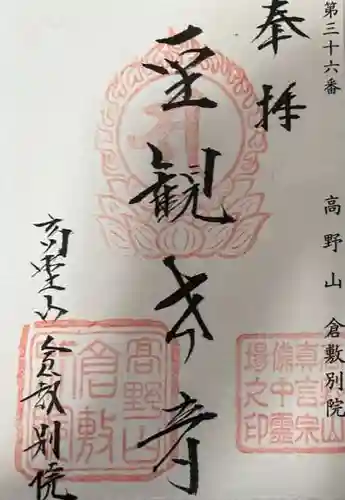 第三十六番　高野山　倉敷別院
奉拝
聖観世音
高野山倉敷別院
高野山
倉敷
別院
真言宗
備中霊
場之印